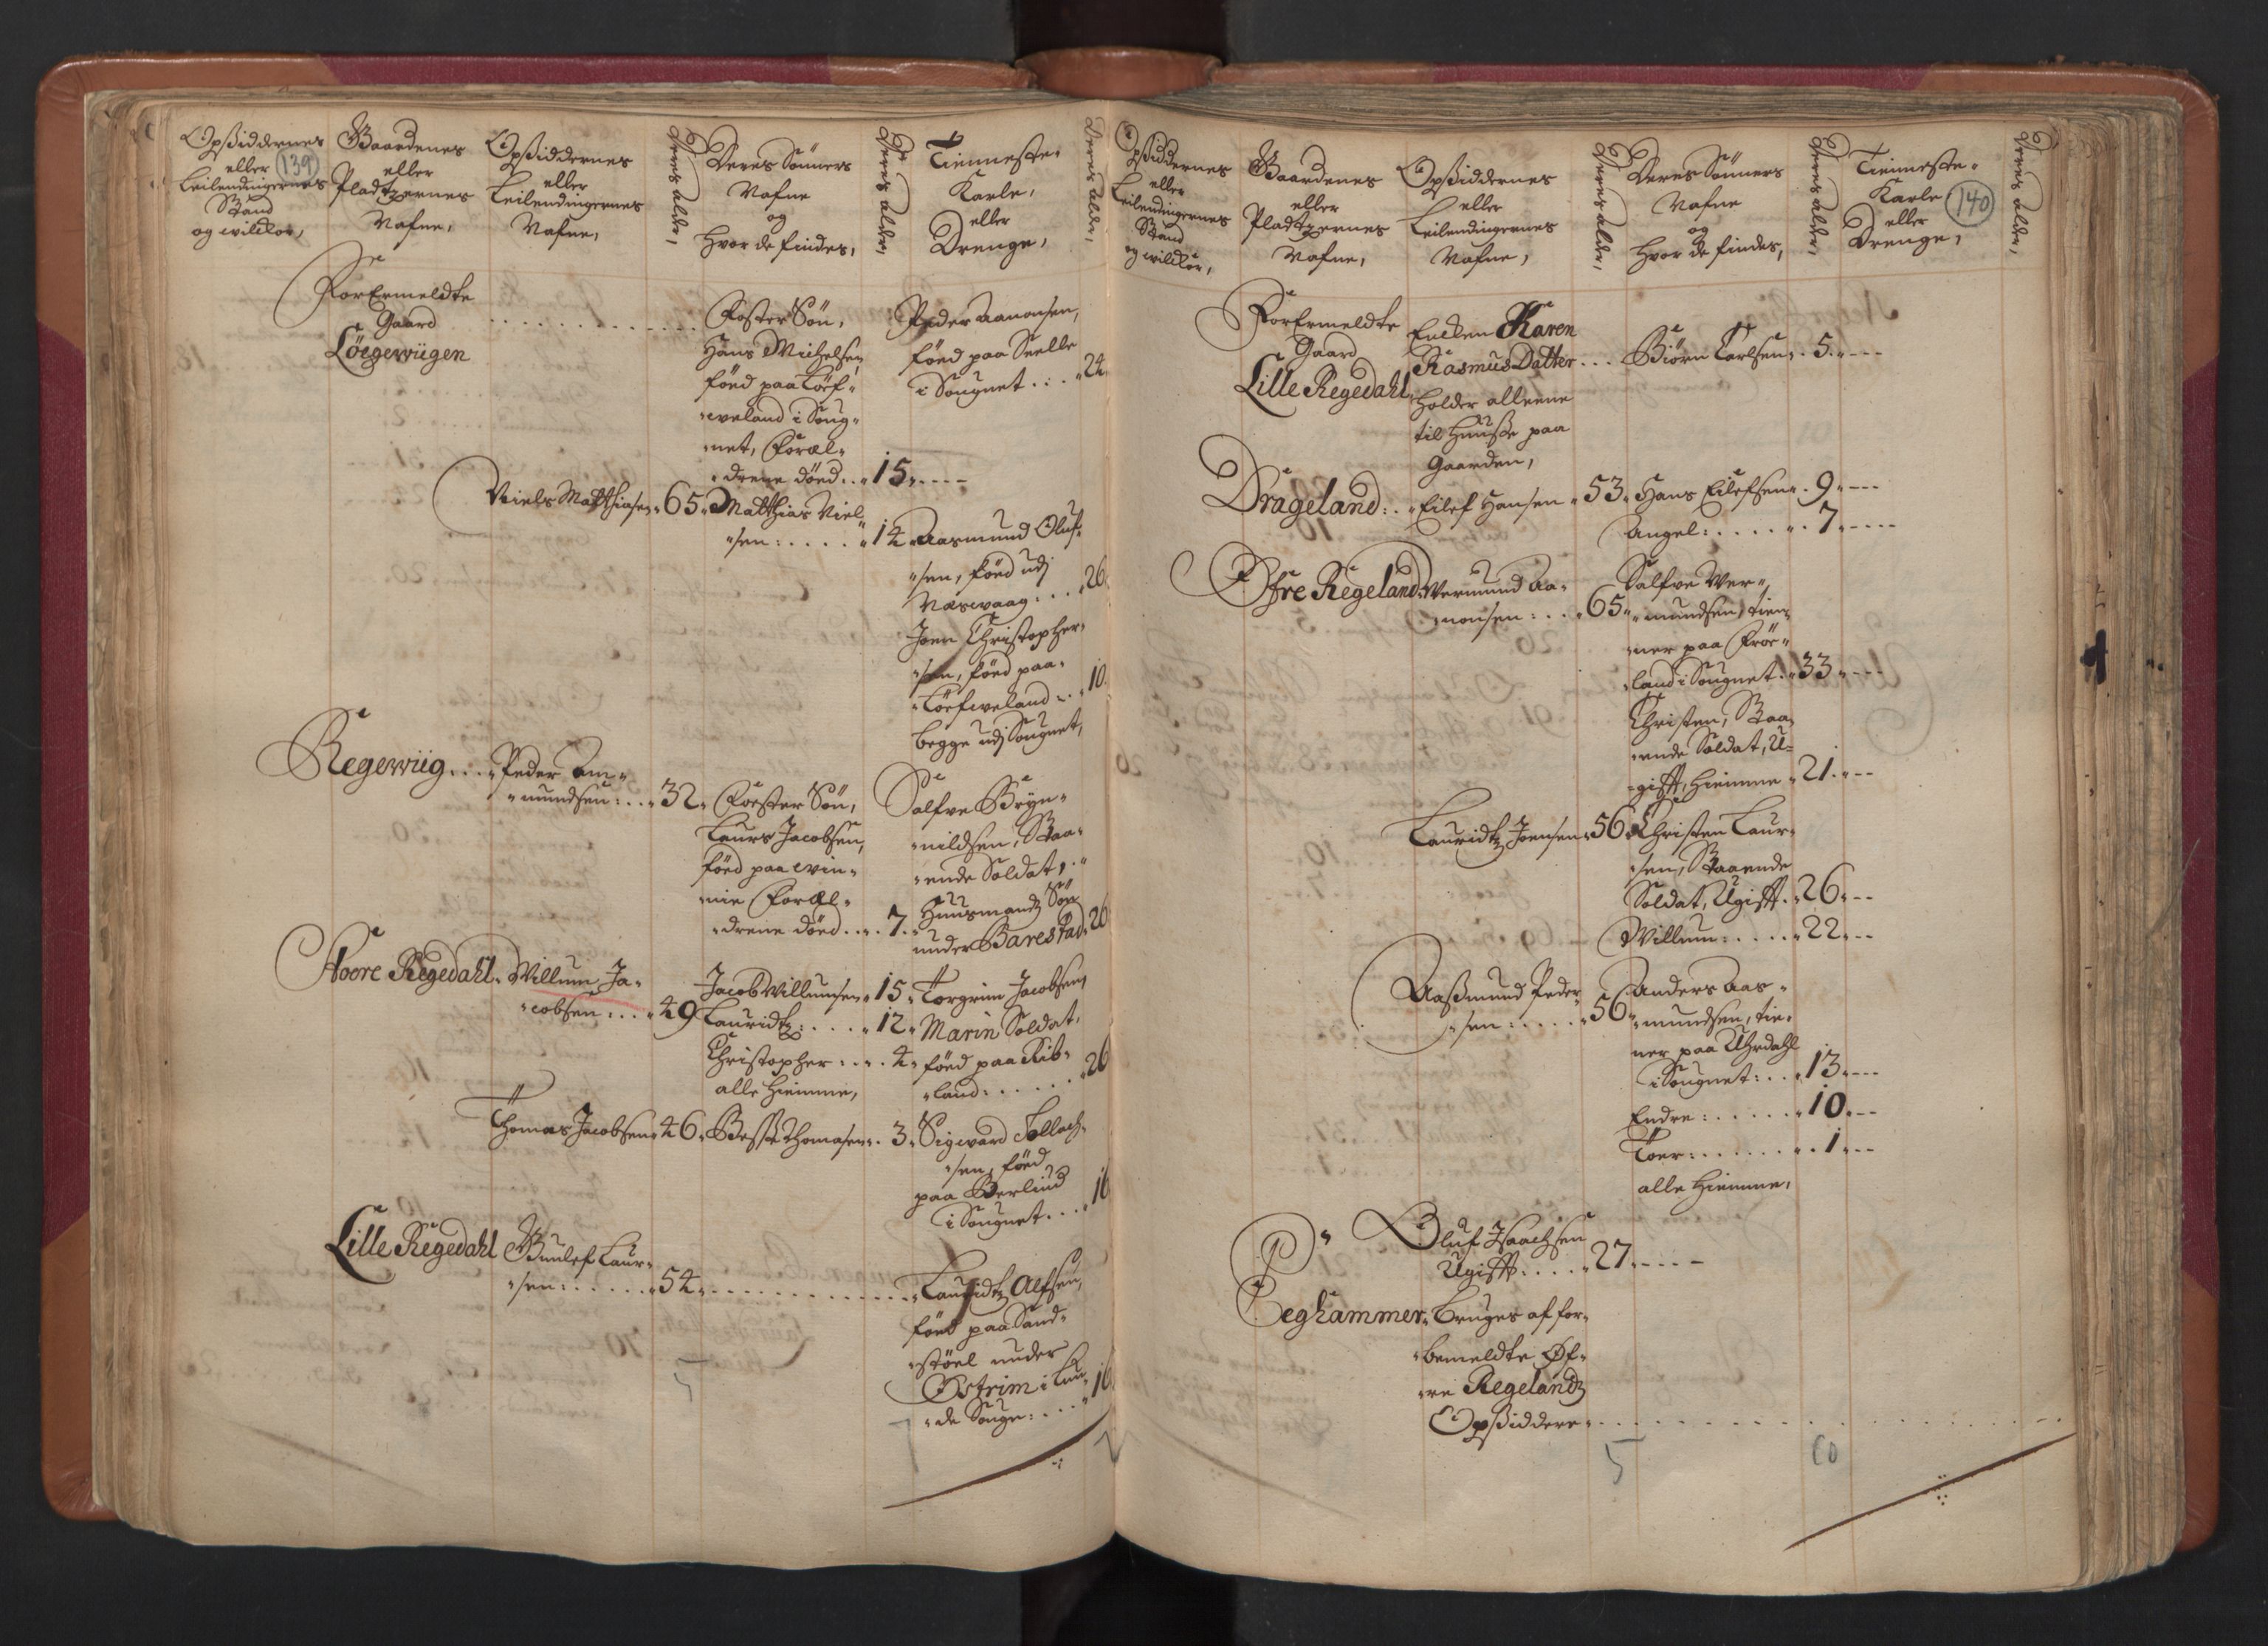 139
Opßiddernes
eller
Leilendingernes
Stand
og wilckor,
Gaardenes
eller
Pladtzernes
Nafne,
Opßiddernes
eller
Leilendingernes
Nafne,
Deres alder,
Deres Sönners
Nafne
og
Hvor de findes,
Deres alder,
Tienneste-
Karle,
eller
Drenge,
Deres alder,
Forermeldte
Gaard
Löegewiigen
Foster Sön,
Hans Michelsen
föed paa Törf-
weland i Soug-
net, Foræl-
drene döed . . 15 . - - -
Peder Aanonsen,
föed paa Seelle
i Sougnet . : . 24
Niels Matthiasen . 65 .
Matthias Niel-
sen : . . . . 14
Aasmund Oluf-
sen, föed udj
Næswaag : . . . 26
Joen Christopher-
sen, föed paa
Törfweland . . 10
begge udj Sougnet,
Regewiig . . .
Peder Am-
mundsen : . . 32 .
Foester Sön,
Laurs Jacobsen,
föed paa win-
nie Foræl-
drene döed . . . 7 .
Salfve Bryn-
nildsen, Staa-
ende Soldat,
Huusmandz Sön
under Barestad 26
Stoere Regedahl .
Willum Ja-
cobsen : . . . 49
Jacob Willumsen . 15 .
Lauridtz : . . . . 12 .
Christopher : . . . 4 .
alle hiemme,
Torgrim Jacobsen
Marin Soldat,
föed paa Rib-
land : . . . . . 26
Thomas Jacobsen . 46 .
Besse Thomasen . . 3 .
Sigward Tollach-
sen, föed
paa Berlind
i Sougnet . . . 16
Lille Regedahl
Gunlef Laur-
sen : . . . . . 54 . . . . . . . . . . . . .
Lauridtz Alfsen,
föed paa Sand-
stöel under
Østrim i Lun-
de Sougn : . . . 16
5
7
140
Opßiddernes
eller
Leilendingernes
Stand
og wilckor,
Gaardenes
eller
Pladtzernes
Nafne,
Opßiddernes
eller
Leilendingernes
Nafne,
Deres alder,
Deres Sönners
Nafne
og
Hvor de findes,
Deres alder,
Tienneste-
Karle
eller
Drenge,
Deres alder,
Forermeldte
Gaard
Lille Regedahl
Encken Karen
Rasmus Datter . . .
holder alleene
til Huuse paa
Gaarden,
Biörn Carlsen . . 5 . - - -
Drageland : . .
Eilef Hansen . 53 .
Hans Eilefsen . . 9 . - - -
Angel : . . . . . . 7 . - - - -
Øfre Regeland .
Wermund Aa-
nonsen : . . . 65 .
Salfve Wer-
mundsen, tien-
ner paa Fröe-
land i Sougnet . . 33 . - - -
Christen, Staa-
ende Soldat, U-
gift, hiemme . 21 . - -
Lauridtz Joensen . 56 .
Christen Laur-
sen, Staaende
Soldat, Ugift . . 26 . - -
Willum : . . . . . 22 . - -
Aaßmund Peder-
sen : . . . . . 56 .
Anders Aas-
mundsen, tie-
ner paa Uhrdahl
i Sougnet : . . . 13 . - - -
Endre : . . . . . . 10 . - -
Toer : . . . . . . . . 1 . - -
alle hiemme,
Oluf Isaachsen
Ugift : . . . . 27 . - - - -
Beghammer .
Bruges af for-
bemeldte Øf-
re Regelandz
Opßiddere . . . . . . . . . . . . . . . . . .
5
10